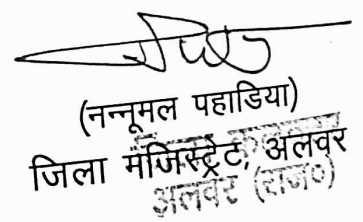 (नन्नूमल पहाडिया)
जिला मजिस्ट्रेट, अलवर
अलवर (राज०)